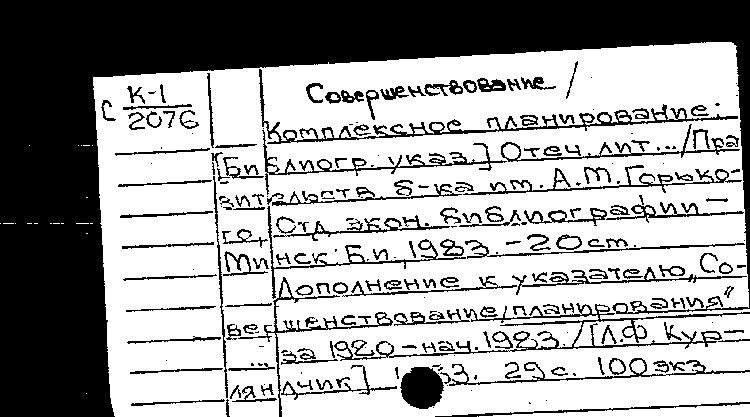 С К-1
2076
Совершенствование /
Комплексное планирование:
[Библиогр. указ.] Отеч. лит... / Пра
вительств. б-ка им. А.М. Горько-
го, Отд. экон. библиографии –
Минск: Б.и., 1983. – 20 ст.
Дополнение к указателю „Со-
вершенствование планирования"
... за 1980 – нач. 1983. / [Л.Ф. Кур–
ляндчик] 29 с. 100 экз.